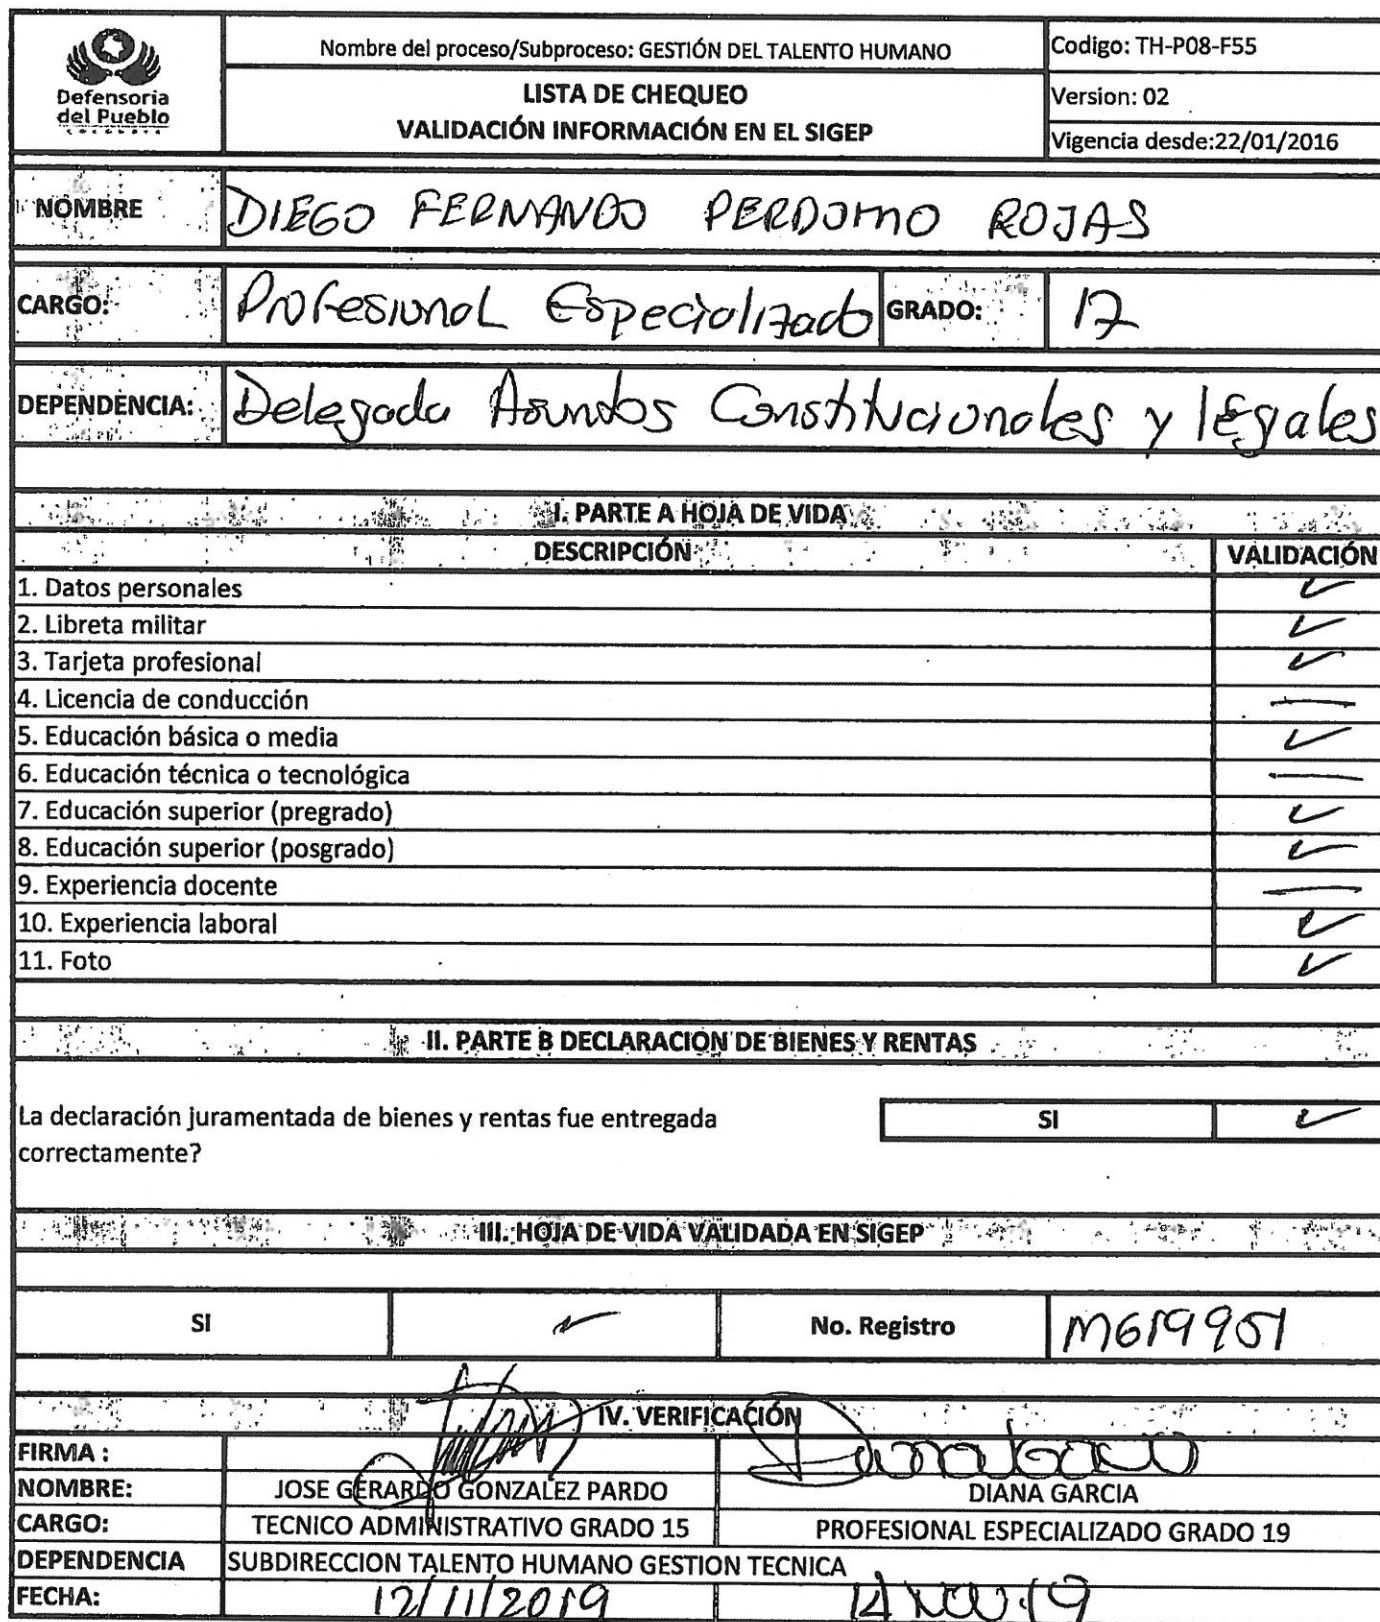 Defensoria
del Pueblo
COLOMBIA
Nombre del proceso/Subproceso: GESTIÓN DEL TALENTO HUMANO
Codigo: TH-P08-F55
LISTA DE CHEQUEO
VALIDACIÓN INFORMACIÓN EN EL SIGEP
Version: 02
Vigencia desde:22/01/2016
NOMBRE DIEGO FERNANDO PERDOMO ROJAS
CARGO: Profesional Especializado GRADO: 17
DEPENDENCIA: Delegada Asuntos Constitucionales y legales
I. PARTE A HOJA DE VIDA
DESCRIPCIÓN VALIDACIÓN
1. Datos personales ✓
2. Libreta militar ✓
3. Tarjeta profesional ✓
4. Licencia de conducción —
5. Educación básica o media ✓
6. Educación técnica o tecnológica —
7. Educación superior (pregrado) ✓
8. Educación superior (posgrado) ✓
9. Experiencia docente —
10. Experiencia laboral ✓
11. Foto ✓
II. PARTE B DECLARACION DE BIENES Y RENTAS
La declaración juramentada de bienes y rentas fue entregada
correctamente?
SI ✓
III. HOJA DE VIDA VALIDADA EN SIGEP
SI ✓ No. Registro M619951
IV. VERIFICACIÓN
FIRMA : Diana Garcia
NOMBRE: JOSE GERARDO GONZALEZ PARDO DIANA GARCIA
CARGO: TECNICO ADMINISTRATIVO GRADO 15 PROFESIONAL ESPECIALIZADO GRADO 19
DEPENDENCIA SUBDIRECCION TALENTO HUMANO GESTION TECNICA
FECHA: 12/11/2019 14 NOV. 19